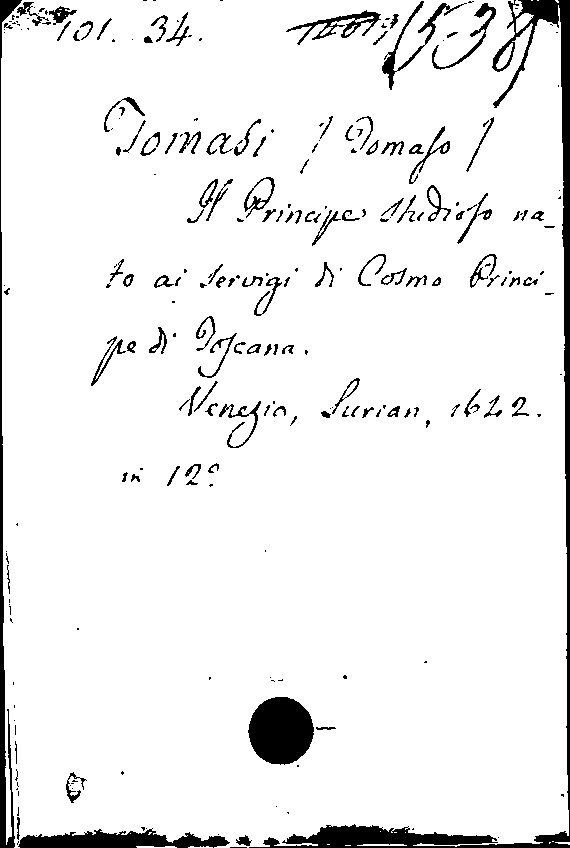 101. 34. (5-38)
Tomasi / Tomaso /
Il Principe studioso na-
to ai servigi di Cosmo Princi-
pe di Toscana.
Venezia, Surian, 1642.
in 12º